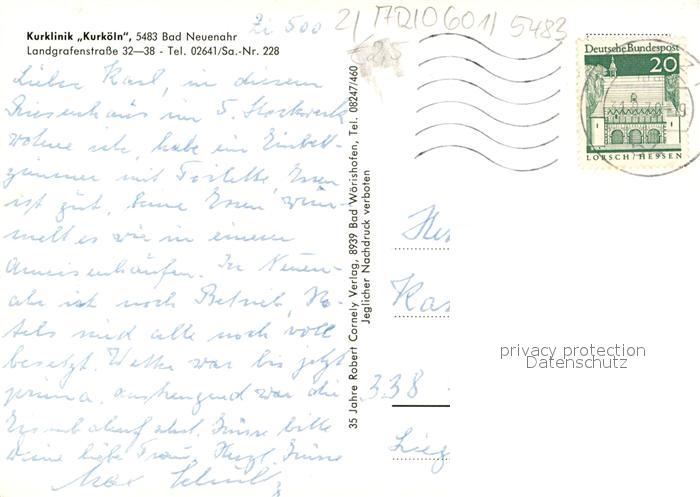 Kurklinik „Kurköln“, 5483 Bad Neuenahr
Landgrafenstraße 32—38 - Tel. 02641/Sa.-Nr. 228
Zi 500
21 17Q1060 11 5483
Deutsche Bundespost
20
LORSCH/HESSEN
Lieber Karl, in diesem
Riesenhaus im 5. Stockwerk
wohne ich, habe ein Einbett-
zimmer mit Toilette, Essen
ist gut, beim Essen wim-
melt es wie in einem
Ameisenhaufen. In Neuen-
ahr ist noch Betrieb, Ho-
tels sind alle noch voll
besetzt. Wetter war bis jetzt
prima, anstrengend war die
Grüsse bitte
Deine liebe Frau, Herzl. Grüsse
35 Jahre Robert Cornely Verlag, 8939 Bad Wörishofen, Tel. 08247/460
Jeglicher Nachdruck verboten
Her
Kar
338
Lieg
privacy protection
Datenschutz